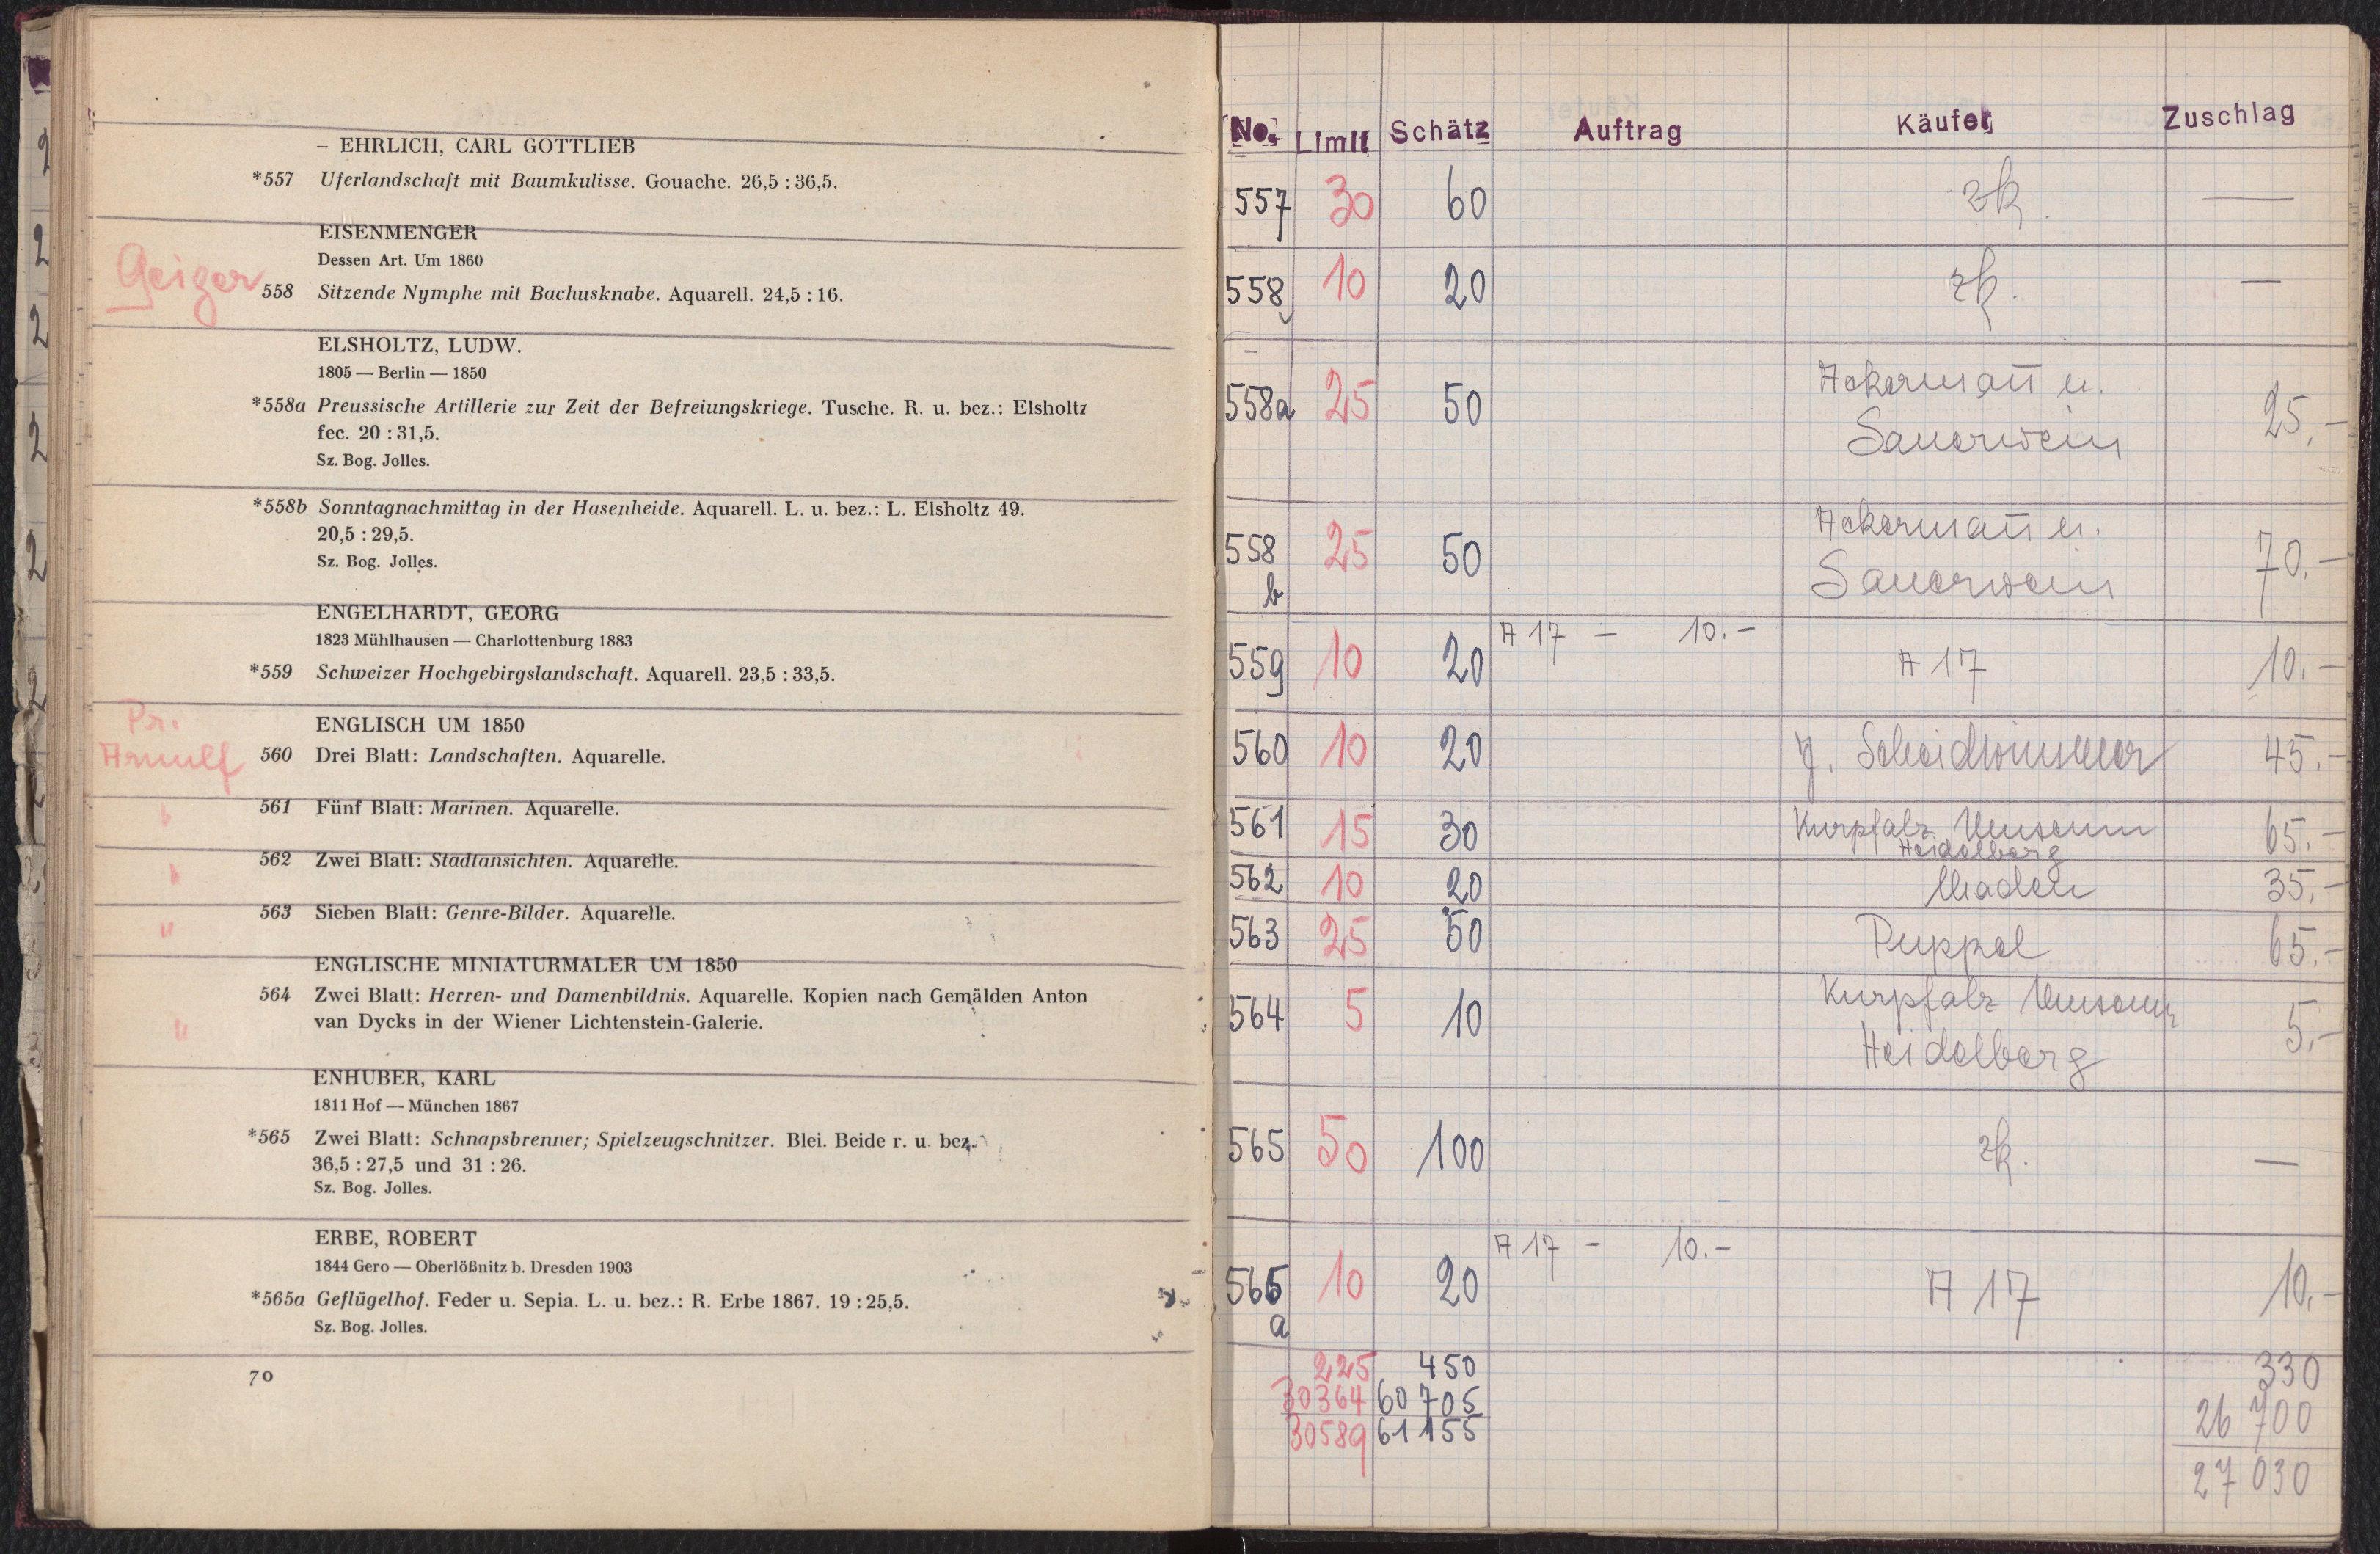 – EHRLICH, CARL GOTTLIEB
*557 Uferlandschaft mit Baumkulisse. Gouache. 26,5 : 36,5.
EISENMENGER
Dessen Art. Um 1860
Geiger
558 Sitzende Nymphe mit Bachusknabe. Aquarell. 24,5 : 16.
ELSHOLTZ, LUDW.
1805 — Berlin — 1850
*558a Preussische Artillerie zur Zeit der Befreiungskriege. Tusche. R. u. bez.: Elsholtz
fec. 20 : 31,5.
Sz. Bog. Jolles.
*558b Sonntagnachmittag in der Hasenheide. Aquarell. L. u. bez.: L. Elsholtz 49.
20,5 : 29,5.
Sz. Bog. Jolles.
ENGELHARDT, GEORG
1823 Mühlhausen — Charlottenburg 1883
*559 Schweizer Hochgebirgslandschaft. Aquarell. 23,5 : 33,5.
Pr.
Arnulf
ENGLISCH UM 1850
560 Drei Blatt: Landschaften. Aquarelle.
" 561 Fünf Blatt: Marinen. Aquarelle.
" 562 Zwei Blatt: Stadtansichten. Aquarelle.
" 563 Sieben Blatt: Genre-Bilder. Aquarelle.
ENGLISCHE MINIATURMALER UM 1850
" 564 Zwei Blatt: Herren- und Damenbildnis. Aquarelle. Kopien nach Gemälden Anton
van Dycks in der Wiener Lichtenstein-Galerie.
ENHUBER, KARL
1811 Hof — München 1867
*565 Zwei Blatt: Schnapsbrenner; Spielzeugschnitzer. Blei. Beide r. u. bez.
36,5 : 27,5 und 31 : 26.
Sz. Bog. Jolles.
ERBE, ROBERT
1844 Gero — Oberlößnitz b. Dresden 1903
*565a Geflügelhof. Feder u. Sepia. L. u. bez.: R. Erbe 1867. 19 : 25,5.
Sz. Bog. Jolles.
70
No. Limit Schätz Auftrag Käufer Zuschlag
557 30 60 zk. —
558 10 20 zk. —
558a 25 50 Ackermañ u.
Sauerwein 25.-
558 25 50 Ackermañ u.
b Sauerwein 70.-
559 10 20 A 17 - 10.- A 17 10.-
560 10 20 45.-
561 15 30 Kurpfalz Museum
Heidelberg 65.-
562 10 20 35.-
563 25 50 Puppel 65.-
564 5 10 Kurpfalz Museum
Heidelberg 5.-
565 50 100 zk. —
565 10 20 A 17 - 10.- A 17 10.-
a
225 450 330
30364 60 705 26 700
30589 61 155 27 030